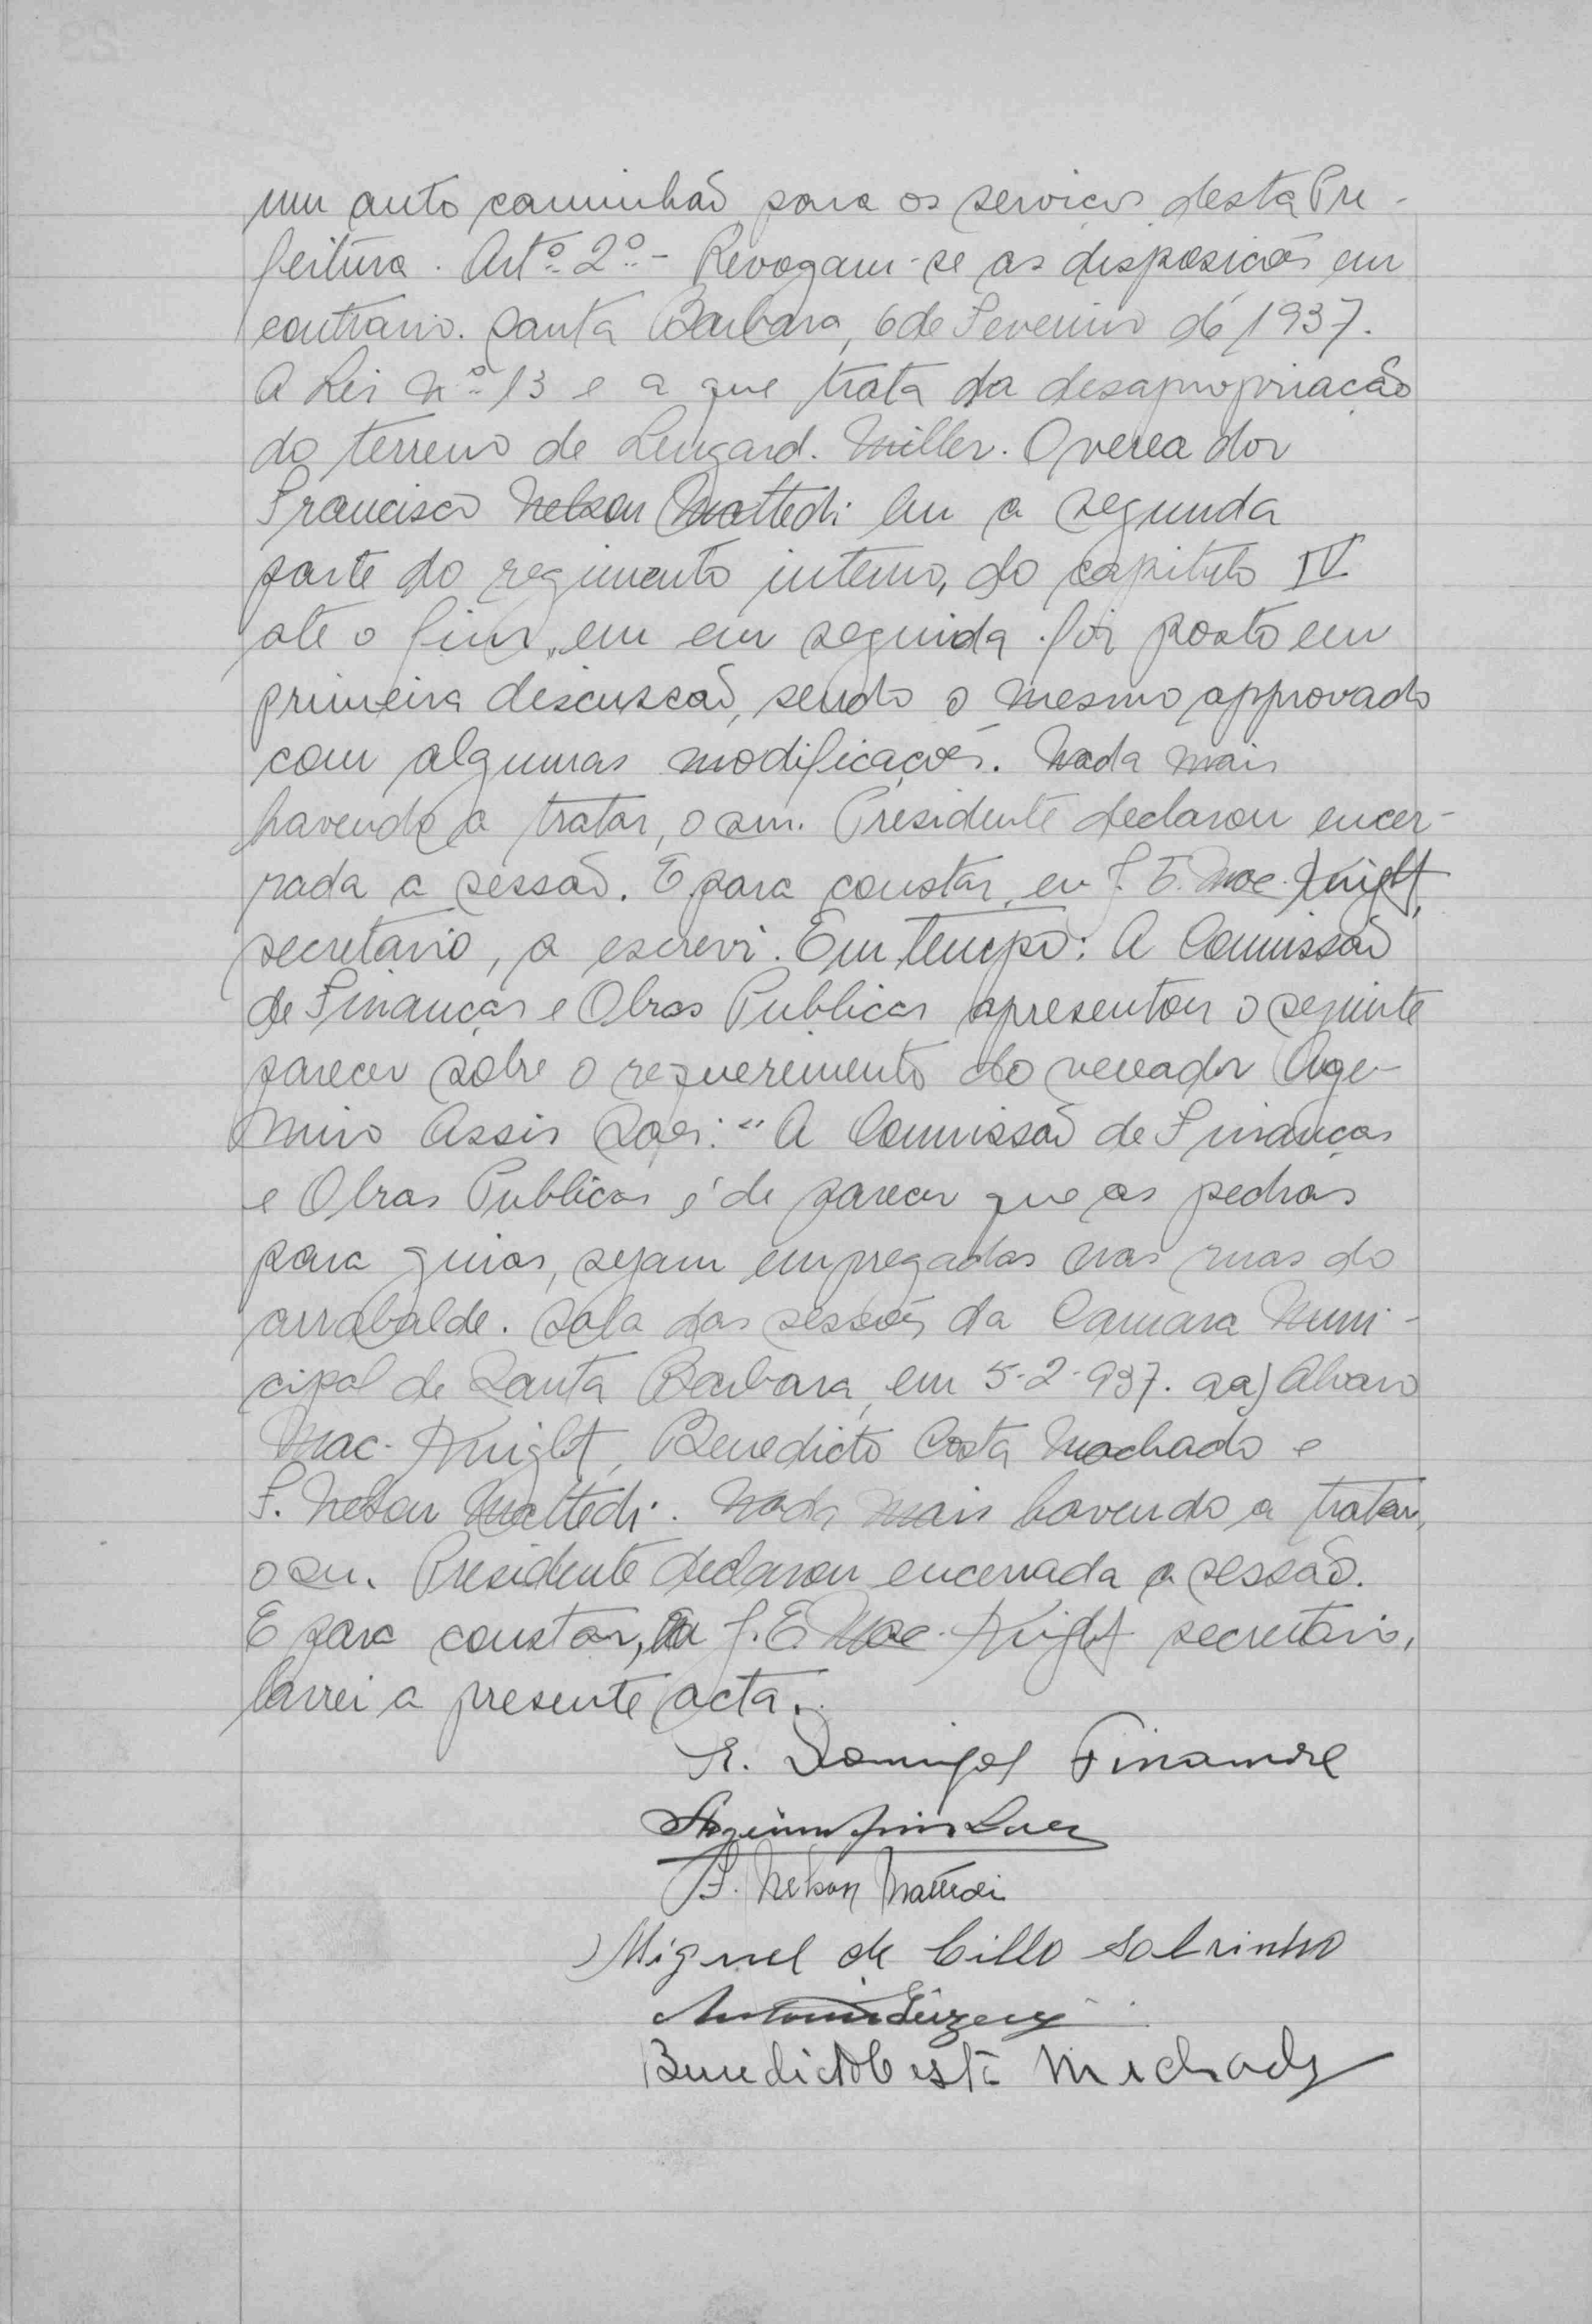 um auto caminhão para os serviços desta Pre-
feitura. Artº 2º - Revogam-se as disposições em
contrario. Santa Barbara, 6 de Fevereiro de 1937.
A Lei nº 13 e a que trata da desapropriação
do terreno de Lengard. Miller. O vereador
Francisco Nelson Mattedi leu a segunda
parte do regimento interno, do capitulo IV
ate o fim, em em seguida foi posto em
primeira discussão, sendo o mesmo approvado
com algumas modificações. Nada mais
havendo a tratar, o snr. Presidente declarou encer-
rada a sessão. E para constar, eu J. E. Mac-Knight,
secretario, a escrevi. Em tempo: A Comissão
de Finanças e Obras Publicas apresentou o seguinte
parecer sobre o requerimento do vereador Age-
miro Assis Saes: "A Commissão de Finanças
e Obras Publicas é de parecer que as pedras
para guias, sejam empregadas nas ruas do
arrabalde. Sala das sessões da Camara Muni-
cipal de Santa Barbara, em 5-2-937. aa) Alvaro
Mac-Knight, Benedicto Costa Machado e
F. Nelson Mattedi. Nada mais havendo a tratar,
o sr. Presidente declarou encerrada a sessão.
E para constar, eu J. E. Mac-Knight secretario,
lavrei a presente acta.
Domingos Finamore
F. Nelson Mattedi
Miguel de Cillo Sobrinho
Antonio
Benedicto Costa Machado